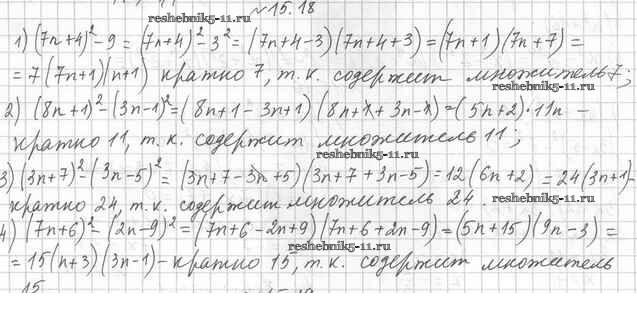 №15.18
reshebnik5-11.ru
1) (7n+4)²-9 = (7n+4)²-3² = (7n+4-3)(7n+4+3) = (7n+1)(7n+7) =
= 7(7n+1)(n+1) кратно 7, т.к. содержит множитель 7;
reshebnik5-11.ru
2) (8n+1)²-(3n-1)² = (8n+1-3n+1)(8n+1+3n-1) = (5n+2)·11n -
кратно 11, т.к. содержит множитель 11;
reshebnik5-11.ru
3) (3n+7)²-(3n-5)² = (3n+7-3n+5)(3n+7+3n-5) = 12(6n+2) = 24(3n+1)-
кратно 24, т.к. содержит множитель 24.
reshebnik5-11.ru
4) (7n+6)²-(2n-9)² = (7n+6-2n+9)(7n+6+2n-9) = (5n+15)(9n-3) =
reshebnik5-11.ru
= 15(n+3)(3n-1) - кратно 15, т.к. содержит множитель
15